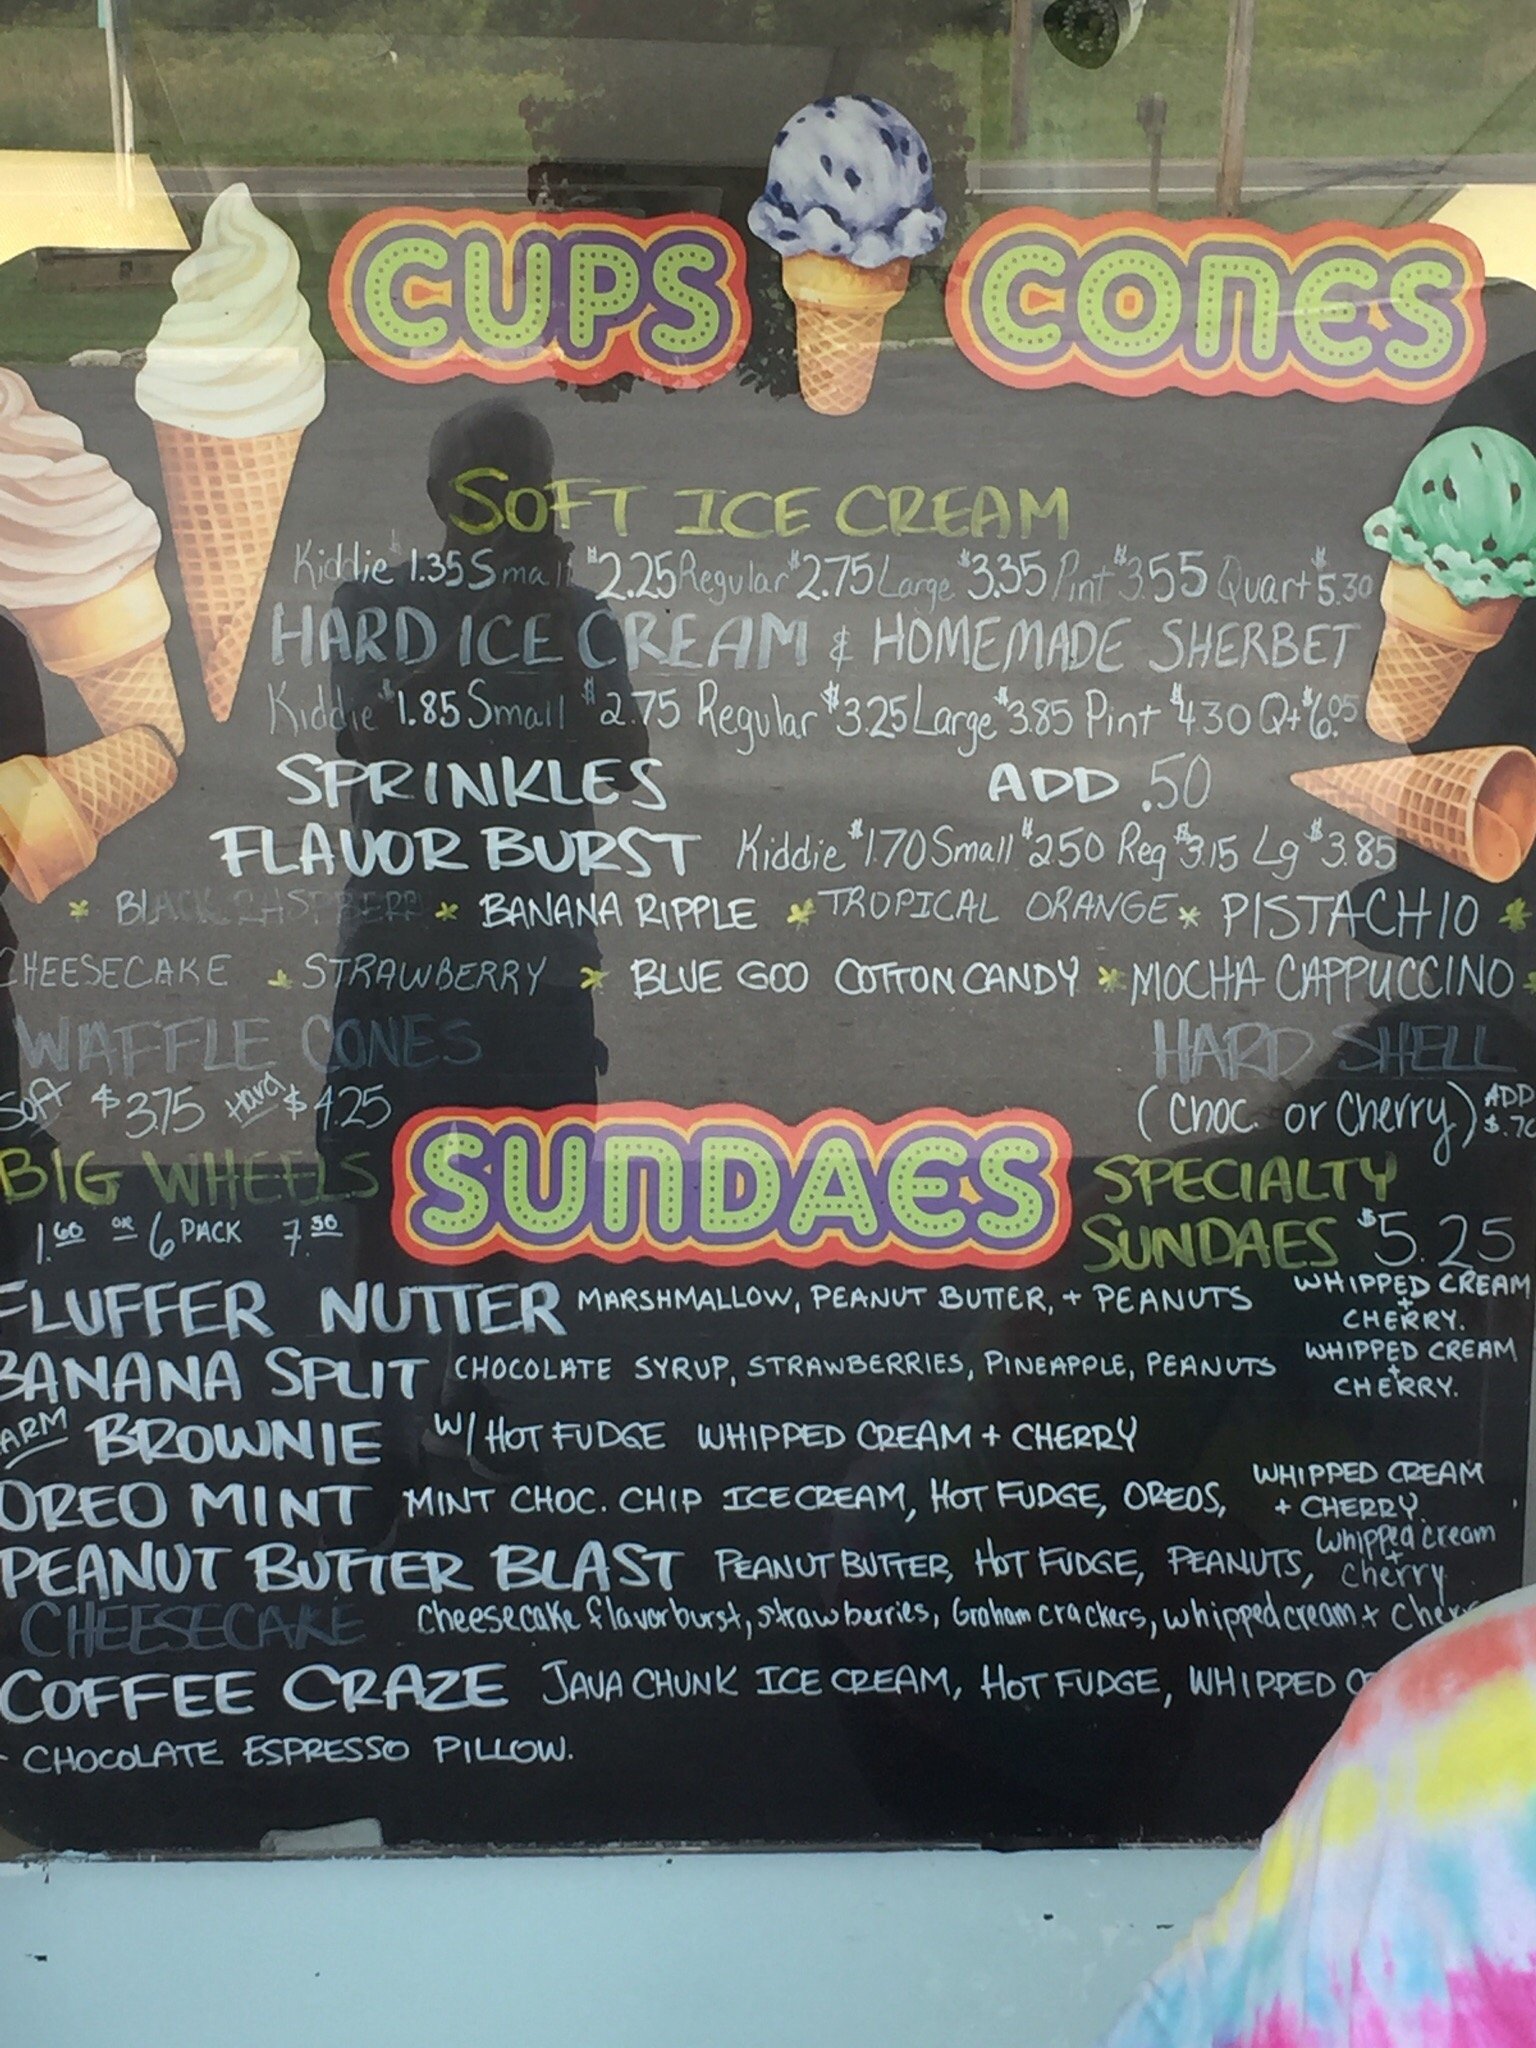 CUPS CONES
SOFT ICE CREAM
Kiddie $1.35 Small $2.25 Regular $2.75 Large $3.35 Pint $3.55 Quart $5.30
HARD ICE CREAM & HOMEMADE SHERBET
Kiddie $1.85 Small $2.75 Regular $3.25 Large $3.85 Pint $4.30 Qt $6.05
SPRINKLES ADD .50
FLAVOR BURST Kiddie $1.70 Small $2.50 Reg $3.15 Lg $3.85
* BLACK * BANANA RIPPLE * TROPICAL ORANGE * PISTACHIO *
CHEESECAKE * STRAWBERRY * BLUE GOO COTTON CANDY * MOCHA CAPPUCCINO *
WAFFLE CONES HARD SHELL
Soft $3.75 Hard $4.25 (Choc. or Cherry) ADD
BIG WHEELS SUNDAES SPECIALTY
1.60 OR 6 PACK 7.50 SUNDAES $5.25
FLUFFER NUTTER MARSHMALLOW, PEANUT BUTTER, + PEANUTS WHIPPED CREAM + CHERRY.
BANANA SPLIT CHOCOLATE SYRUP, STRAWBERRIES, PINEAPPLE, PEANUTS WHIPPED CREAM + CHERRY.
ARM BROWNIE W/ HOT FUDGE WHIPPED CREAM + CHERRY
OREO MINT MINT CHOC. CHIP ICE CREAM, HOT FUDGE, OREOS, WHIPPED CREAM + CHERRY.
PEANUT BUTTER BLAST PEANUT BUTTER, HOT FUDGE, PEANUTS, Whipped cream + cherry
CHEESECAKE Cheesecake flavorburst, strawberries, Graham crackers, whipped cream +
COFFEE CRAZE JAVA CHUNK ICE CREAM, HOT FUDGE, WHIPPED
- CHOCOLATE ESPRESSO PILLOW.